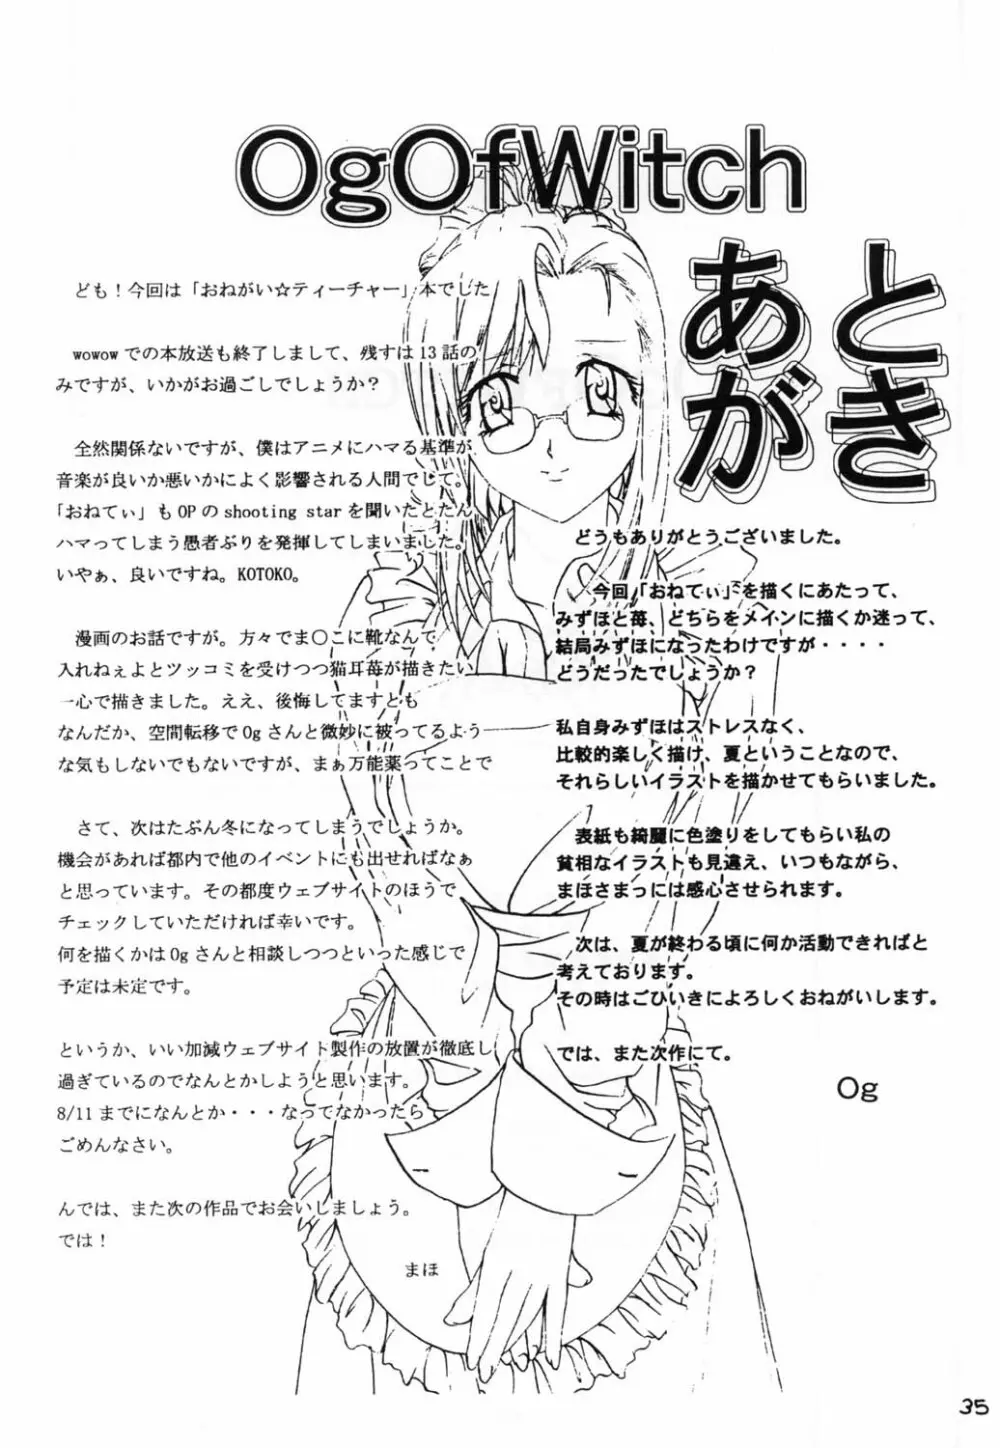 OgOfWitch
あとがき
ども！今回は「おねがい☆ティーチャー」本でした
wowowでの本放送も終了しまして、残すは13話の
みですが、いかがお過ごしでしょうか？
全然関係ないですが、僕はアニメにハマる基準が
音楽が良いか悪いかによく影響される人間でして。
「おねてぃ」もOPのshooting starを聞いたとたん
ハマってしまう愚者ぶりを発揮してしまいました。
いやぁ、良いですね。KOTOKO。
漫画のお話ですが。方々でま〇こに靴なんて
入れねぇよとツッコミを受けつつ猫耳苺が描きたい
一心で描きました。ええ、後悔してますとも
なんだか、空間転移でOgさんと微妙に被ってるよう
な気もしないでもないですが、まぁ万能薬ってことで
さて、次はたぶん冬になってしまうでしょうか。
機会があれば都内で他のイベントにも出せればなぁ
と思っています。その都度ウェブサイトのほうで
チェックしていただければ幸いです。
何を描くかはOgさんと相談しつつといった感じで
予定は未定です。
というか、いい加減ウェブサイト製作の放置が徹底し
過ぎているのでなんとかしようと思います。
8/11までになんとか・・・なってなかったら
ごめんなさい。
んでは、また次の作品でお会いしましょう。
では！
まほ
どうもありがとうございました。
今回「おねてぃ」を描くにあたって、
みずほと苺、どちらをメインに描くか迷って、
結局みずほになったわけですが・・・・
どうだったでしょうか？
私自身みずほはストレスなく、
比較的楽しく描け、夏ということなので、
それらしいイラストを描かせてもらいました。
表紙も綺麗に色塗りをしてもらい私の
貧相なイラストも見違え、いつもながら、
まほさまっには感心させられます。
次は、夏が終わる頃に何か活動できればと
考えております。
その時はごひいきによろしくおねがいします。
では、また次作にて。
Og
35